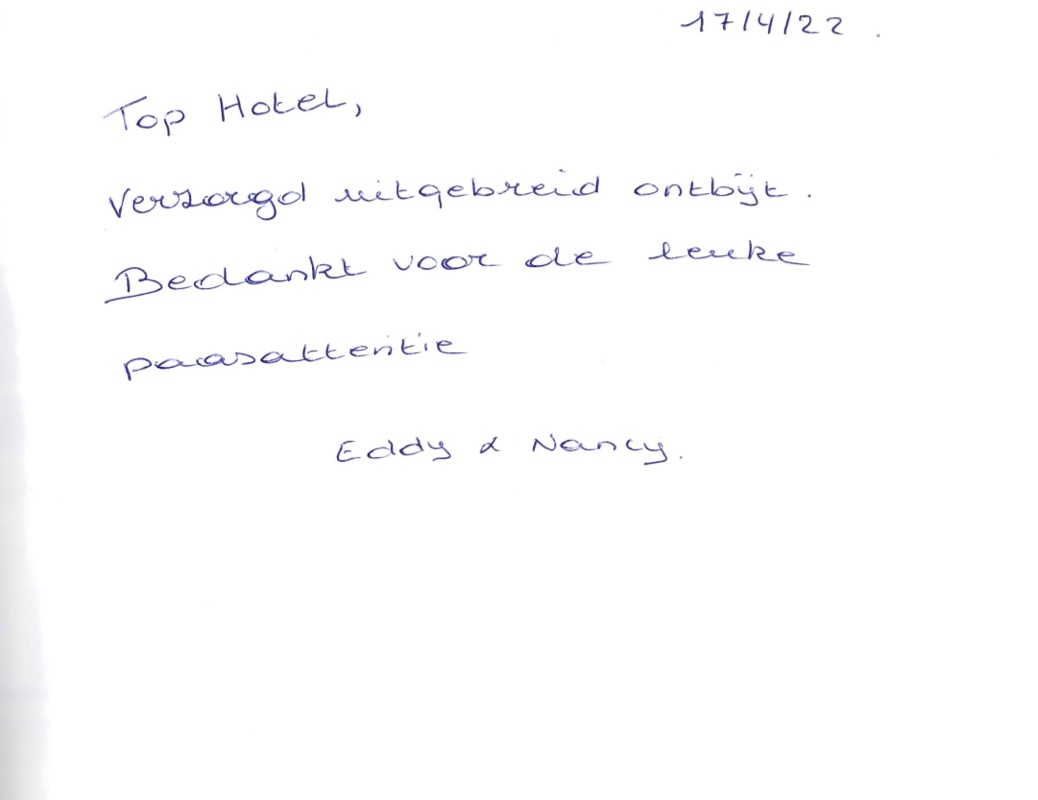 17/4/22.
Top Hotel,
Verzorgd uitgebreid ontbijt.
Bedankt voor de leuke
paasattentie
Eddy & Nancy.